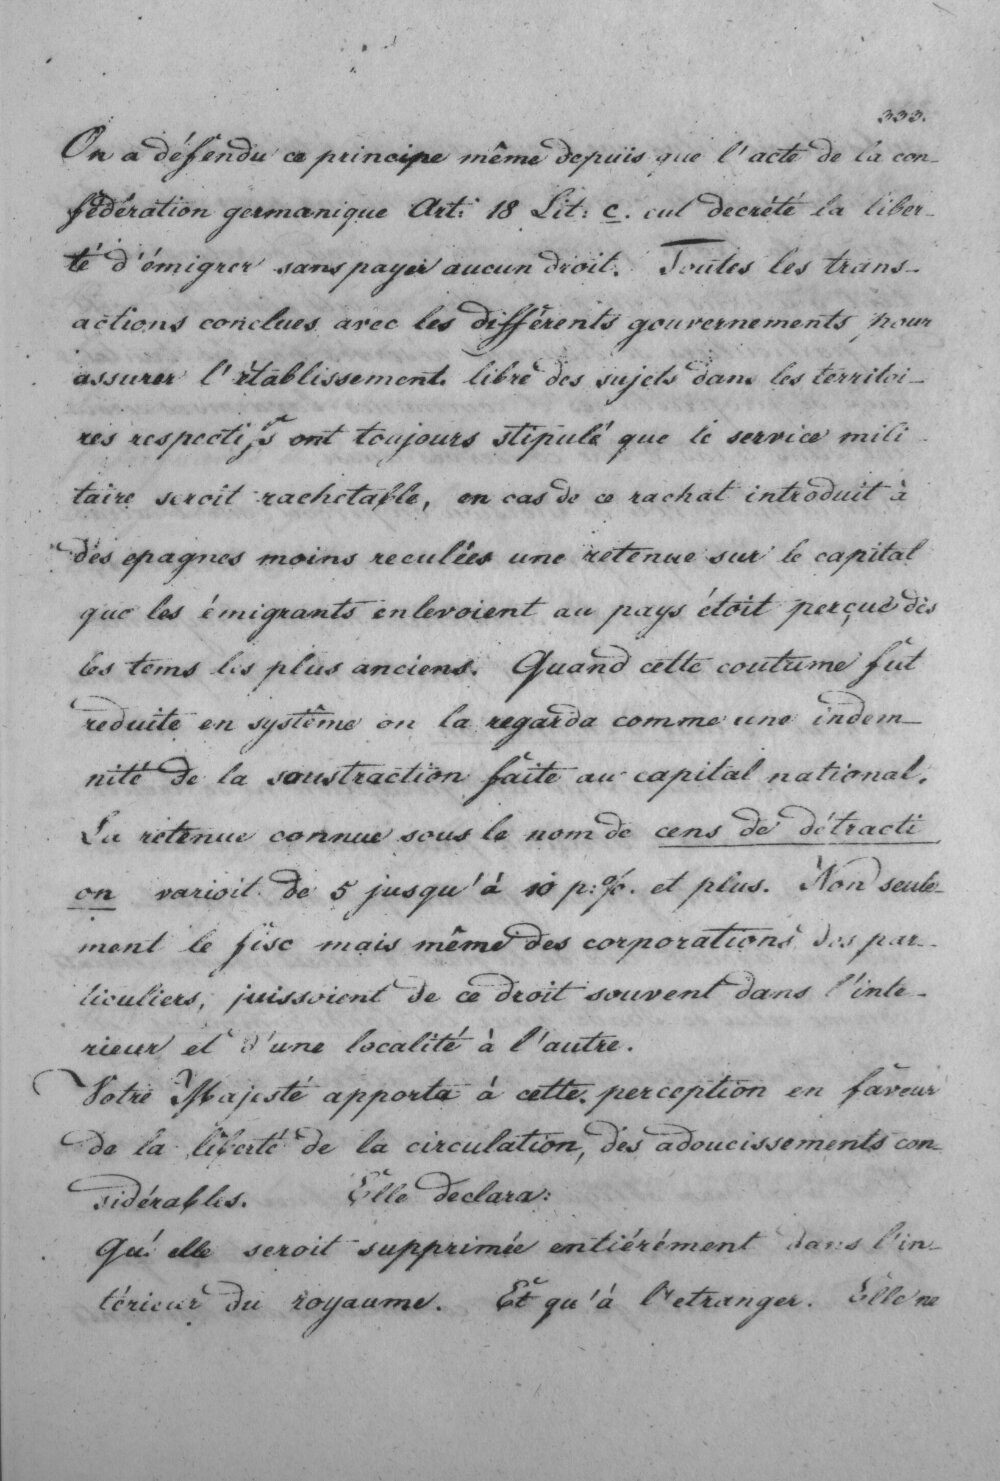 333.
On a défendu ce principe même depuis que l'acte de la con-
fédération germanique Art: 18 Lit: c. eut decrété la liber-
té d'émigrer sans payer aucun droit. Toutes les trans-
actions conclues avec les différents gouvernements pour
assurer l'établissement libre des sujets dans les territoi-
res respectifs ont toujours stipulé que le service mili-
taire seroit rachetable, en cas de ce rachat introduit à
des epagnes moins reculées une retenue sur le capital
que les émigrants enlevoient au pays étoit perçue dès
les tems les plus anciens. Quand cette coutume fut
reduite en système on la regarda comme une indem-
nité de la soustraction faite au capital national.
La retenue connue sous le nom de cens de détracti
on varioit de 5 jusqu'à 10 p:%. et plus. Non seule-
ment le fisc mais même des corporations des par-
ticuliers, juissoient de ce droit souvent dans l'inte-
rieur et d'une localité à l'autre.
Votre Majesté apporta à cette perception en faveur
de la liberté de la circulation, des adoucissements con-
sidérables. Elle declara:
Qu'elle seroit supprimée entiérément dans l'in-
térieur du royaume. Et qu'à l'etranger. Elle ne